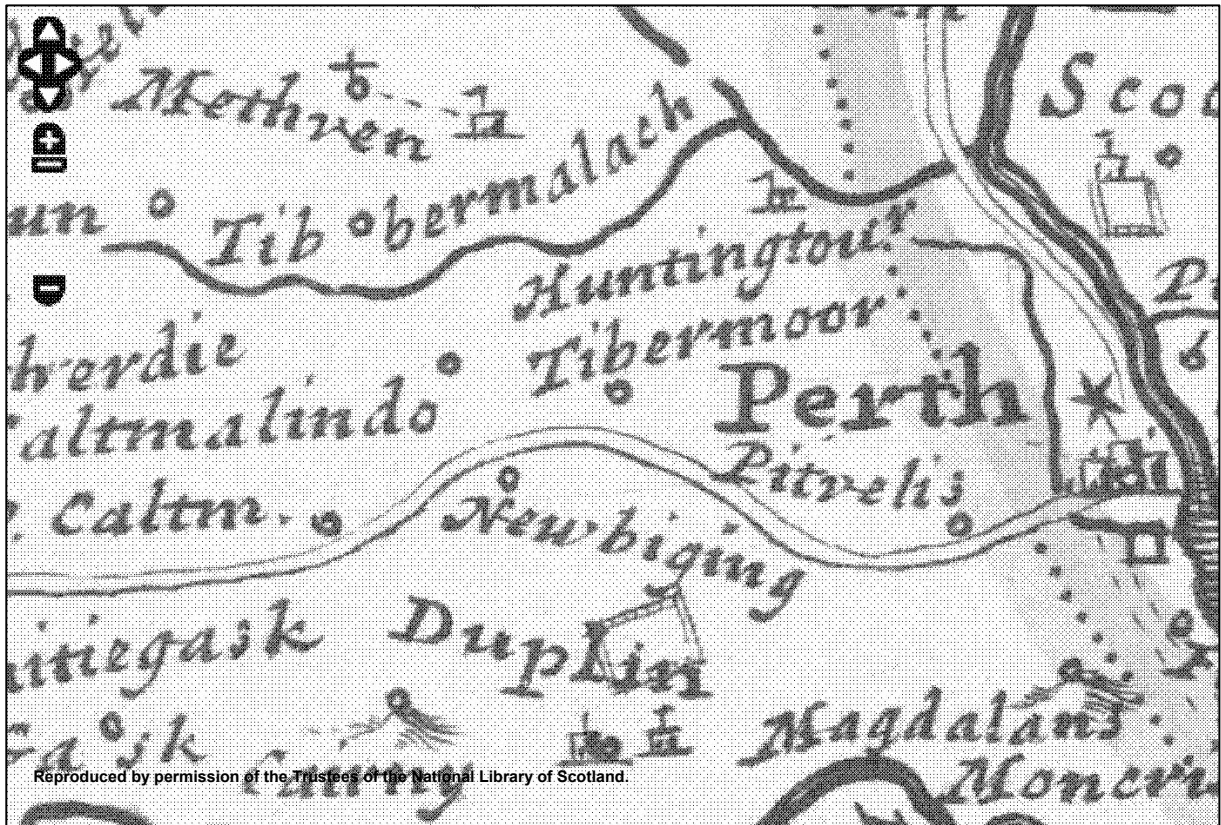 Methven
Scoo
un
Tib bermalach
Huntingtour
Tibermoor
herdie
Perth
altmalindo
Pitvelis
Caltm.
Newbiging
itiegask
Duplin
Magdalans
Gask
Cairny
Moncri
Reproduced by permission of the Trustees of the National Library of Scotland.